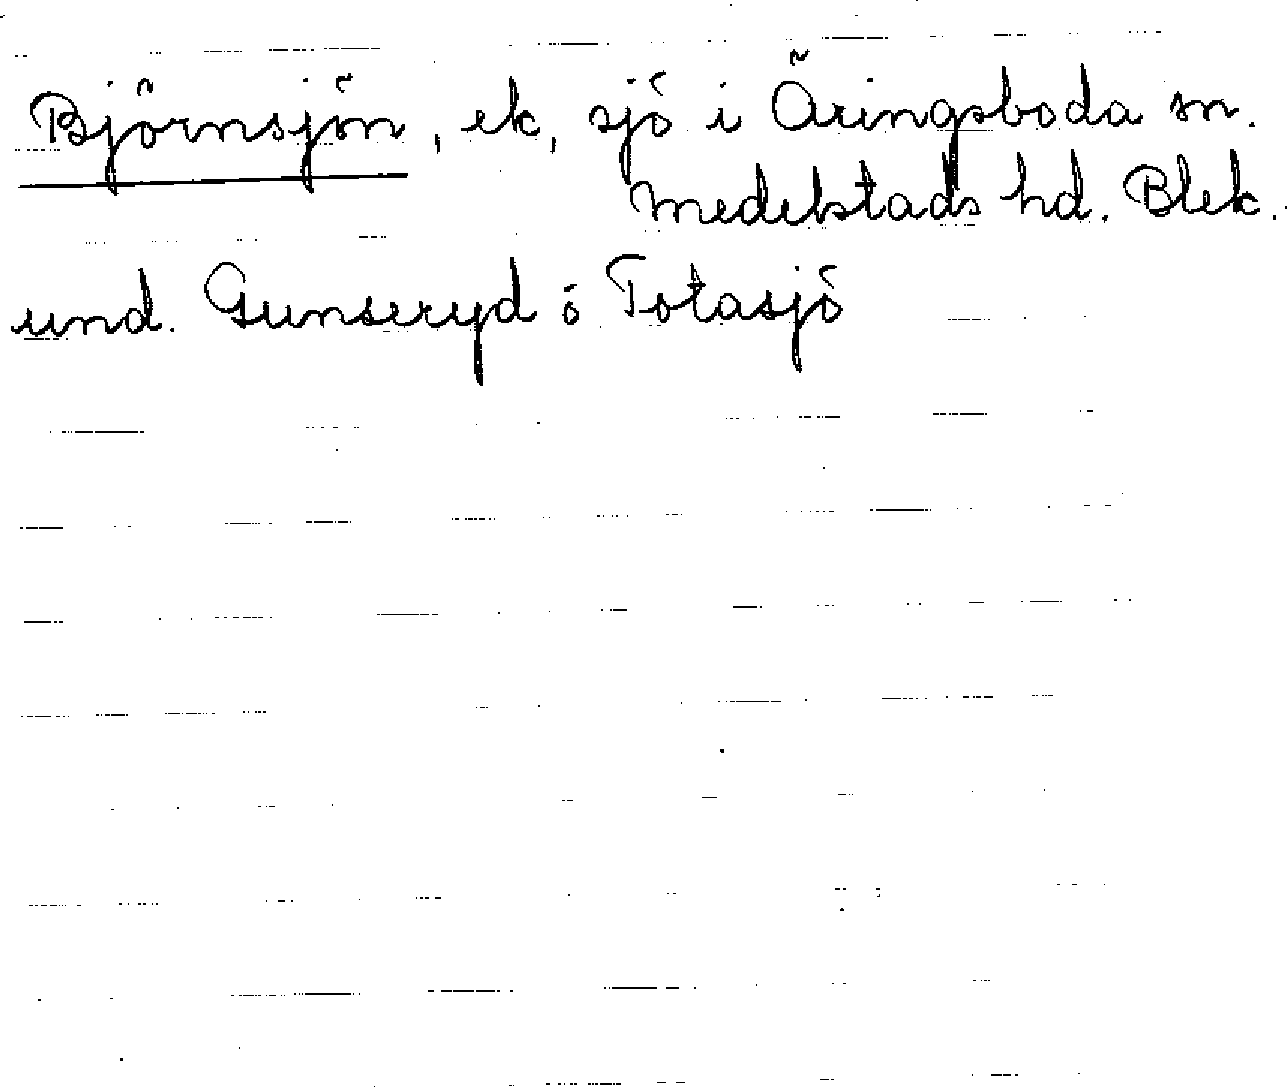 Björnsjön, ek, sjö i Äringsboda sn.
Medelstads hd. Blek.
und. Gunseryd ö Totasjö